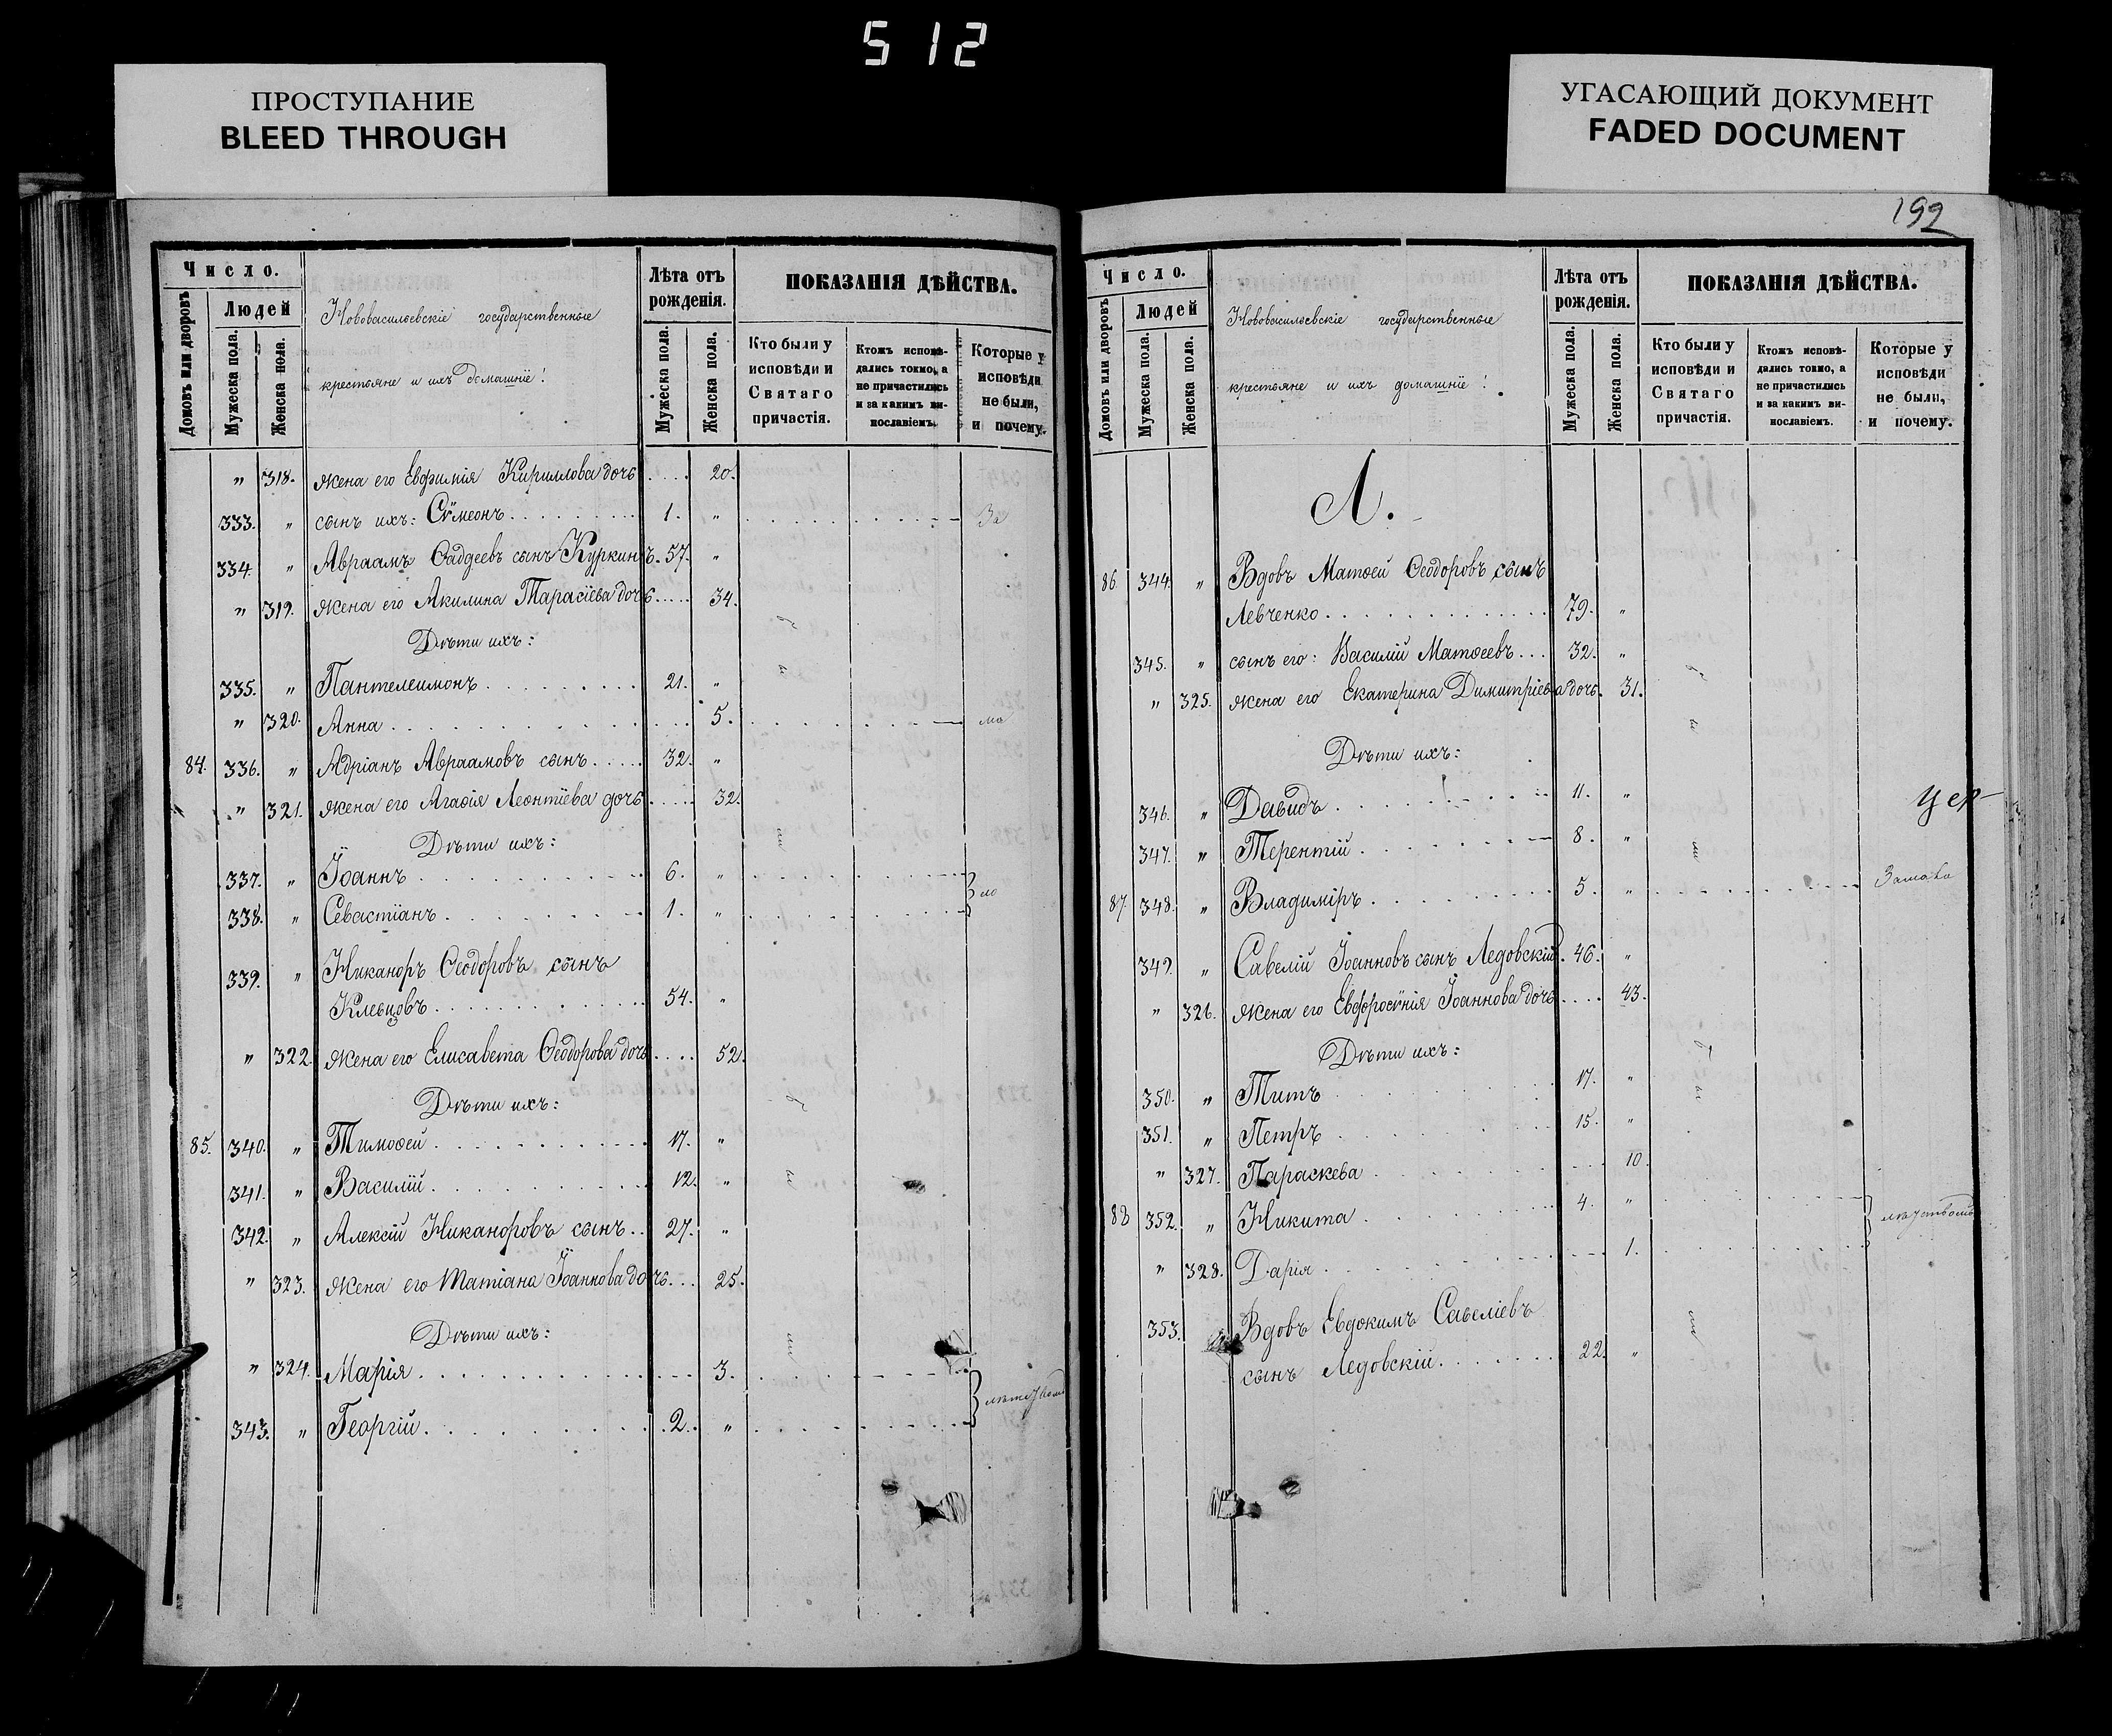 512
ПРОСТУПАНИЕ
BLEED THROUGH
УГАСАЮЩИЙ ДОКУМЕНТ
FADED DOCUMENT
Число.
Домовъ или дворовъ
Людей
Мужеска пола.
Женска пола.
Нововасильевскіе государственные
крестьяне и ихъ домашніе:
Лѣта отъ
рожденія.
Мужеска пола.
Женска пола.
ПОКАЗАНІЯ ДѢЙСТВА.
Кто были у
исповѣди и
Святаго
причастія.
Ктожъ исповѣ-
дались токмо, а
не причастились
и за какимъ ви-
нословіемъ.
Которые у
исповѣди
не были,
и почему.
" 318. жена его Евфимія Кириллова дочь .... 20.
333. " сынъ ихъ: Сѷмеонъ 1. " За
334. " Авраамъ Ѳаддеевъ сынъ Куркинъ. 57. "
" 319. жена его Акилина Тарасіева дочь 34.
Дѣти ихъ:
335. " Пантелеимонъ 21. "
" 320. Анна 5. ма
84. 336. " Адріанъ Авраамовъ сынъ 32. "
" 321. жена его Агаѳія Леонтіева дочь 32.
Дѣти ихъ:
337. " Іоаннъ 6. "
338. " Севастіанъ 1. " ло
339. " Никаноръ Ѳеодоровъ сынъ
Клевцовъ 54. "
" 322. жена его Елисавета Ѳеодорова дочь 52.
Дѣти ихъ:
85. 340. " Тимоѳей 17. "
341. " Василій 12. "
342. " Алексій Никаноровъ сынъ 27. "
" 323. жена его Татіана Іоаннова дочь 25.
Дѣти ихъ:
" 324. Марія 3.
343. " Георгій 2. "
192
Число.
Домовъ или дворовъ
Людей
Мужеска пола.
Женска пола.
Нововасильевскіе государственные
крестьяне и ихъ домашніе:
Лѣта отъ
рожденія.
Мужеска пола.
Женска пола.
ПОКАЗАНІЯ ДѢЙСТВА.
Кто были у
исповѣди и
Святаго
причастія.
Ктожъ исповѣ-
дались токмо, а
не причастились
и за какимъ ви-
нословіемъ.
Которые у
исповѣди
не были,
и почему.
Л.
86 344. " Вдовъ Матѳей Ѳеодоровъ сынъ
Левченко 79. "
345. " сынъ его: Василій Матѳеевъ 32. "
" 325. жена его Екатерина Димитріева дочь. 31.
Дѣти ихъ:
346. " Давидъ 11. "
цер-
347. " Терентій 8. "
87 348. " Владиміръ 5. "
349. " Савелій Іоанновъ сынъ Ледовскій. 46. "
" 326. жена его Евфросѷнія Іоаннова дочь 43.
Дѣти ихъ:
350. " Титъ 17. "
351. " Петръ 15. "
" 327. Параскева 10.
88 352. " Никита 4. "
" 328. Дарія 1.
353. Вдовъ Евдокимъ Савеліевъ
сынъ Ледовскій 22. "